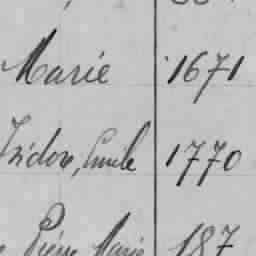 Marie 1671
Isidor, Emile 1770
Pierre Marie 187